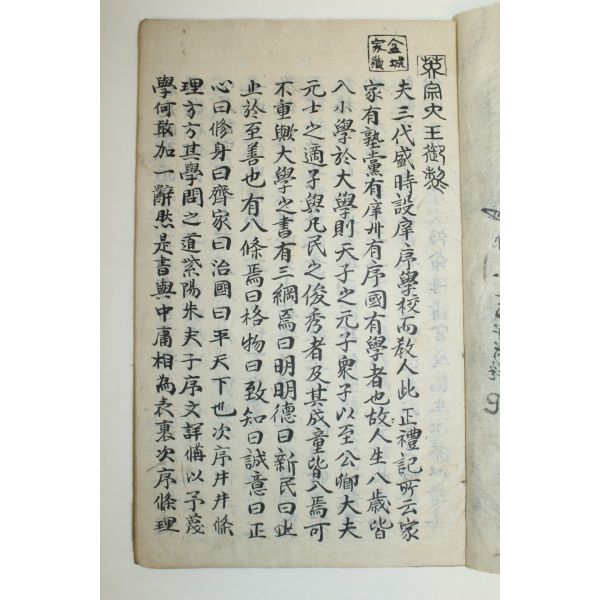 英宗大王御製
金城
家藏
夫三代盛時設庠序學校而教人此正禮記所云家
家有塾黨有庠州有序國有學者也故人生八歲皆
入小學於大學則天子之元子衆子以至公卿大夫
元士之適子與凡民之俊秀者及其成童皆入焉可
不重歟大學之書有三綱焉曰明明德曰新民曰止
止於至善也有八條焉曰格物曰致知曰誠意曰正
心曰修身曰齊家曰治國曰平天下也次序井井條
理方方其學問之道紫陽朱夫子序文詳備以予蔑
學何敢加一辭然是書與中庸相為表裏次序條理